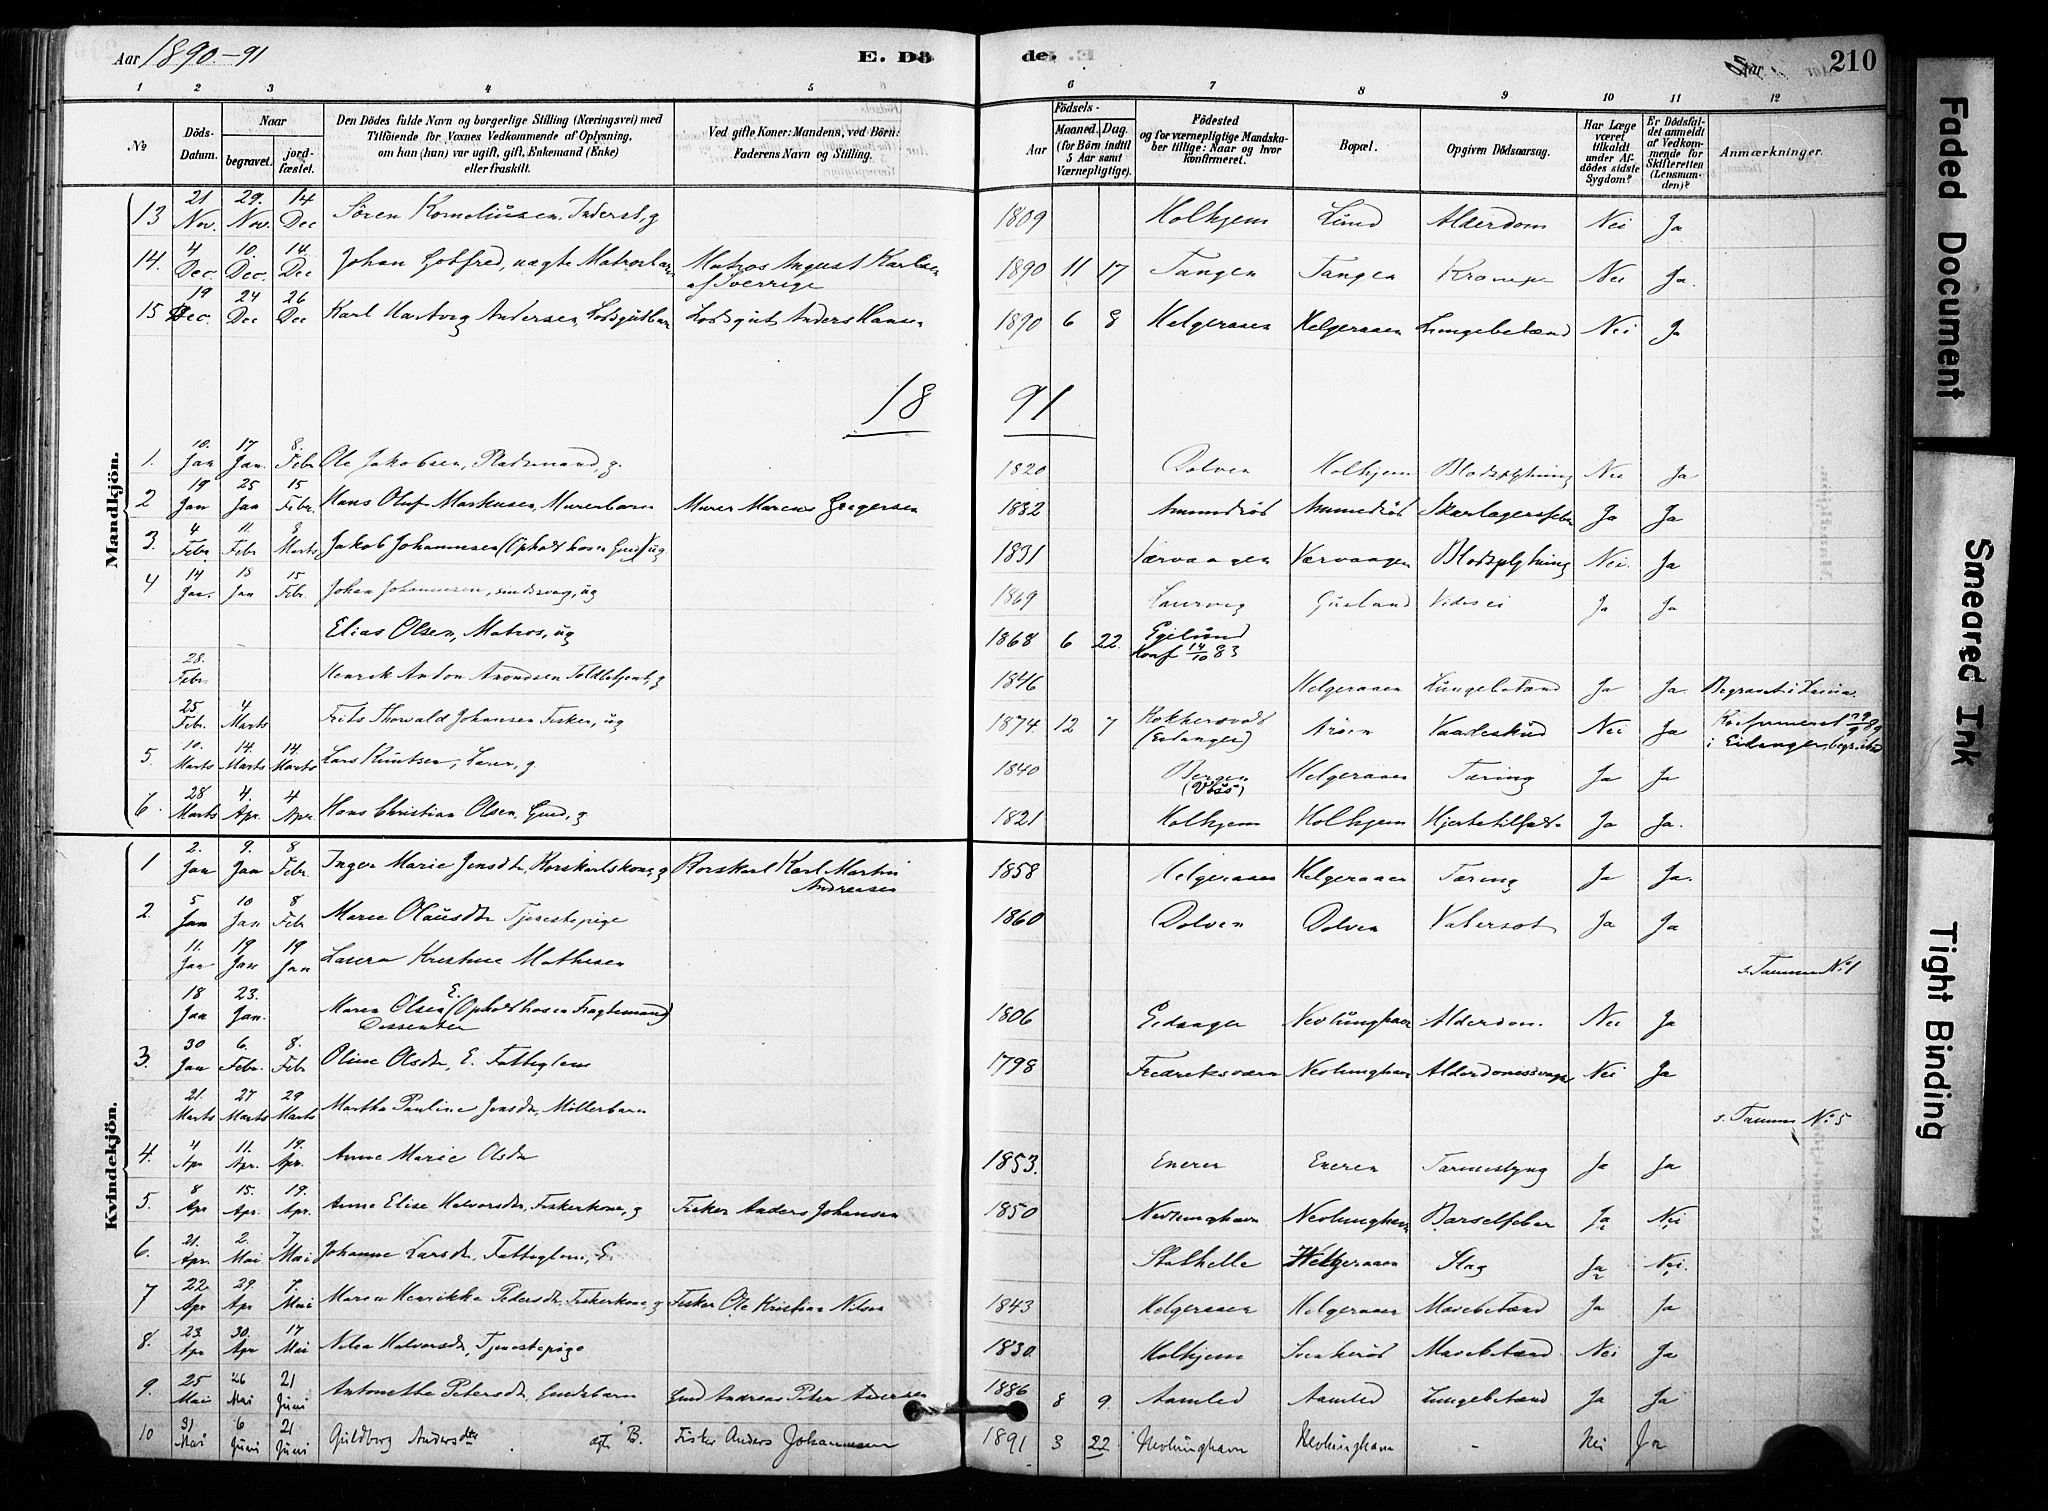 Aar 1890.-91 E. Dö de. 210
1 2 3 4 5 6 7 8 9 10 11 12
No Döds-Datum. Naar begravet. jord-fæstet. Den Dödes fulde Navn og borgerlige Stilling (Næringsvei) med Tilföiende for Voxnes Vedkommende af Oplysning, om han (hun) var ugift, gift, Enkemand (Enke) eller fraskilt. Ved gifte Koner: Mandens, ved Börn: Faderens Navn og Stilling. Födsels- Aar Maaned. Dag. (for Börn indtil 5 Aar samt Værnepligtige). Födested og for værnepligtige Mandska-ber tillige: Naar og hvor konfirmeret. Bopæl. Opgiven Dödsaarsag. Har Læge været tilkaldt under Af-dödes sidste Sygdom? Er Dödsfal-det anmeldt af Vedkom-mende for Skifteretten (Lensman-den)? Anmærkninger.
Mandkjön.
13 21 Nov. 29. Nov. 14 Dec Sören Korneliusen, Inderst, g 1809 Holhjem Lund Alderdom Nei Ja.
14. 4 Dec. 10. Dec. 14. Dec Johan Gotfred, uægte Matrosbarn Matros August Karlsen af Sverrige 1890 11 17 Tangen Tangen Krampe Nei Ja.
15 19 Dec. 24 Dec 26 Dec Karl Hartvig Andersen, Lodsgutbarn Lodsgut Anders Hansen 1890 6 8 Helgeraaen Helgeraaen Lungebetænd Nei Ja
18 91
1. 10. Jan 17 Jan. 8. Febr Ole Jakobsen, Pladsmand, g. 1820 Dolven Holhjem Blodspytning Nei Ja
2 19 Jan 25 Jan 15 Febr. Hans Oluf Markusen, Murerbarn Murer Marcus Gregersen 1882 Amundröd Amundröd Skarlagensfeber Ja Ja
3. 4 Febr. 11. Febr 8 Marts Jakob Johannesen (Ophold hos en Gmd) ug 1831 Værvaagen Værvaagen Blodspytning Nei. Ja
4 14 Jan. 18 Jan 15 Febr. Johan Johannesen, sindssvag, ug 1869 Laurvig Gusland Ja Ja
Elias Olsen, Matros, ug 1868 6 22. Egilund Konf 14/10 83
28. Febr. Henrik Anton Arondsen Toldbetjent, g 1846 Helgeraaen Lungebetænd Ja Ja.
25 Febr. 4 Marts Frits Thorvald Johansen Fisker, ug 1874. 12 7 (Eidanger) Aröen Vaadeskud Nei Ja Konfirmeret 29/9 89 i Eidanger, begravet
5. 10. Marts 14. Marts 14. Marts Lars Knutsen, Lærer, g. 1840 Bergen (Voss) Helgeraaen Tæring Ja Ja
6. 28 Marts 4. Apr. 4 Apr. Hans Christian Olsen, Gmd, g 1821 Holhjem Holhjem Hjertetilfælde Ja Ja.
Kvindekjön.
1 2. Jan 9. Jan 8 Febr. Inger Marie Jensdtr, Rorskarlskone, g Rorskarl Karl Martin Andreasen 1858 Helgeraaen Helgeraaen Tæring Ja Ja.
2. 5 Jan 10 Jan 8 Feb Maren Olausdtr Tjenestepige 1860 Dolven Dolven Vatersot Ja Ja
11. Jan 19 Jan 19 Jan Laura Kristine Mathisen s. Tanum No 1
18 Jan 23. Jan. Maren Olsen E. (Ophold hos en Fragtemand) Dissenter 1806 Eidanger Nevlunghavn Alderdom. Nei Ja
3. 30 Jan 6. Febr. 8. Febr Oline Olsdtr, E. Fattiglem 1798 Fredriksværn Nevlunghavn Alderdomssvaghed Nei Ja
21. Marts 27 Marts 29 Marts Martha Pauline Jensdtr, Möllerbarn s. Tanum No 5
4. 4 Ap 11. Apr. 19. Apr. Anne Marie Olsdtr 1853. Eneren Eneren Tarmeslyng Ja Ja
5. 8 Apr 15. Apr. 19. Apr. Anne Elise Halvorsdtr, Fiskerkone, g Fisker Anders Johansen 1850 Nevlunghavn Nevlunghavn Barselfeber Ja Nei
6. 21. Apr. 2. Mai 7 Mai Johanne Larsdtr, Fattiglem, E. Stathelle Helgeraaen Slag Ja Nei.
7 22 Apr 29. Apr 7. Mai Maren Henrikke Pedersdtr, Fiskerkone, g Fisker Ole Kristian Nilsen 1843 Helgeraaen Helgeraaen Mavebetænd Ja Ja
8. 23. Apr 30. Apr 17 Mai Nilea Halvorsdtr, Tjenestepige 1830. Holhjem Svenkeröd Mavebetænd Nei Ja
9. 25 Mai 26 Mai 21 Juni Antonette Petersdtr, Gmdsbarn Gmd Andreas Peter Andersen 1886 8 9. Aamlid Aamlid Lungebetænd Ja Ja
10 31 Mai 6 Juni 21 Juni Guldborg Andersdtr. ægte B. Fisker Anders Johannesen 1891 3 22 Nevlunghavn Nevlunghavn - Nei Ja
Faded Document
Smeared Ink
Tight Binding